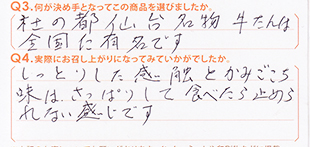 Q3.何が決め手となってこの商品を選びましたか。
杜の都仙台名物牛たんは
全国に有名です
Q4.実際にお召し上がりになってみていかがでしたか。
しっとりした感触とかみごこち
味は、さっぱりして食べたら止めら
れない感じです